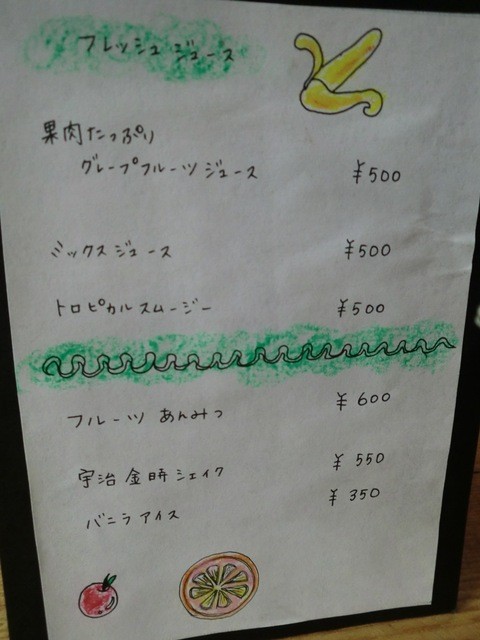 フレッシュジュース
果肉たっぷり
グレープフルーツジュース ¥500
ミックスジュース ¥500
トロピカルスムージー ¥500
フルーツあんみつ ¥600
宇治金時シェイク ¥550
バニラアイス ¥350